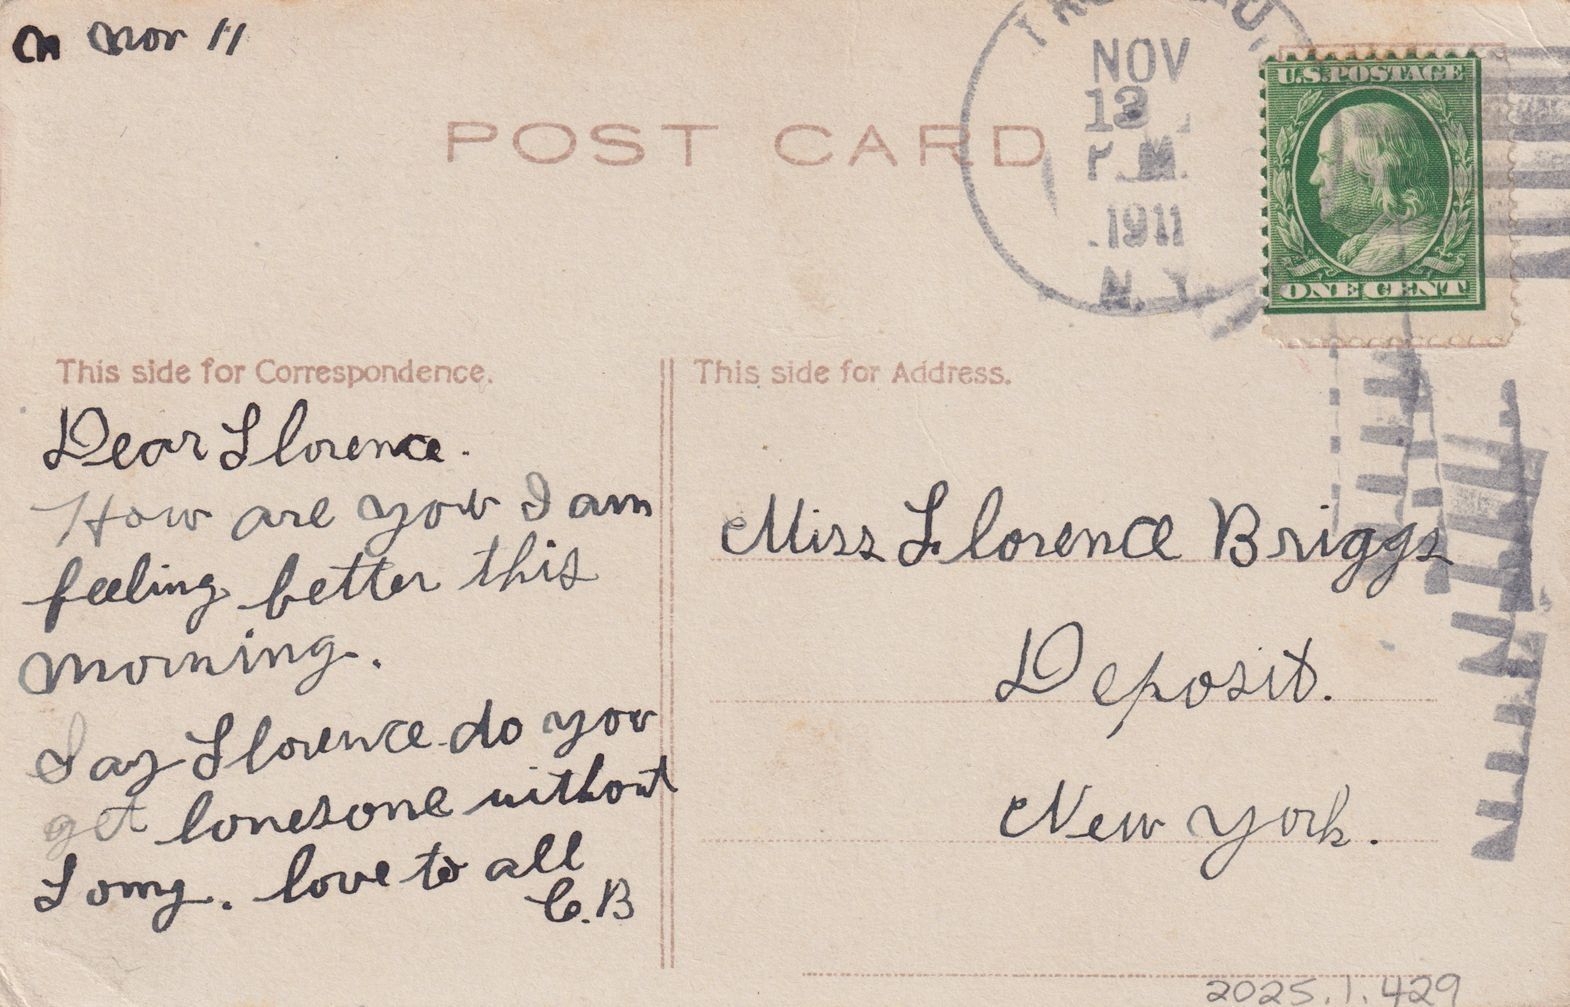 Nov 11
POST CARD
NOV
13
P.M.
1911
N.Y.
U.S. POSTAGE
ONE CENT
This side for Correspondence.
Dear Florence.
How are you I am
feeling better this
morning.
Say Florence do you
get lonesone without
Tomy. love to all
C.B
This side for Address.
Miss Florence Briggs
Deposit.
New York.
2025.1.429